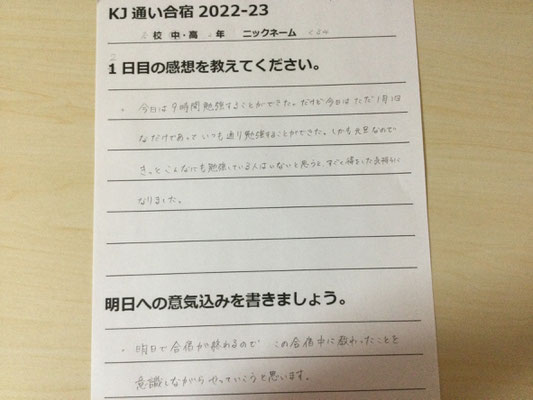 KJ 通い合宿 2022-23
校 中・高 年 ニックネーム
1日目の感想を教えてください。
・今日は9時間勉強することができた。だけど今日はただ1月1日
なだけであっていつも通り勉強することができた。しかも元旦なので
きっとこんなにも勉強している人はいないと思うと、すごく得をした気持ちに
なりました。
明日への意気込みを書きましょう。
・明日で合宿が終わるので この合宿中に教わったことを
意識しながらやっていこうと思います。